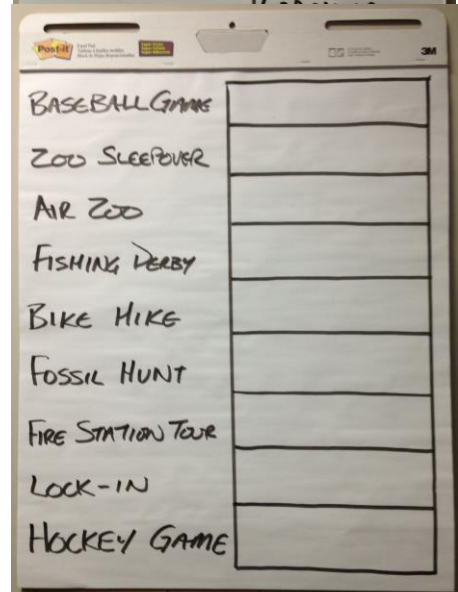 Post-it
3M
BASEBALL GAME
ZOO SLEEPOVER
AIR ZOO
FISHING DERBY
BIKE HIKE
FOSSIL HUNT
FIRE STATION TOUR
LOCK-IN
HOCKEY GAME